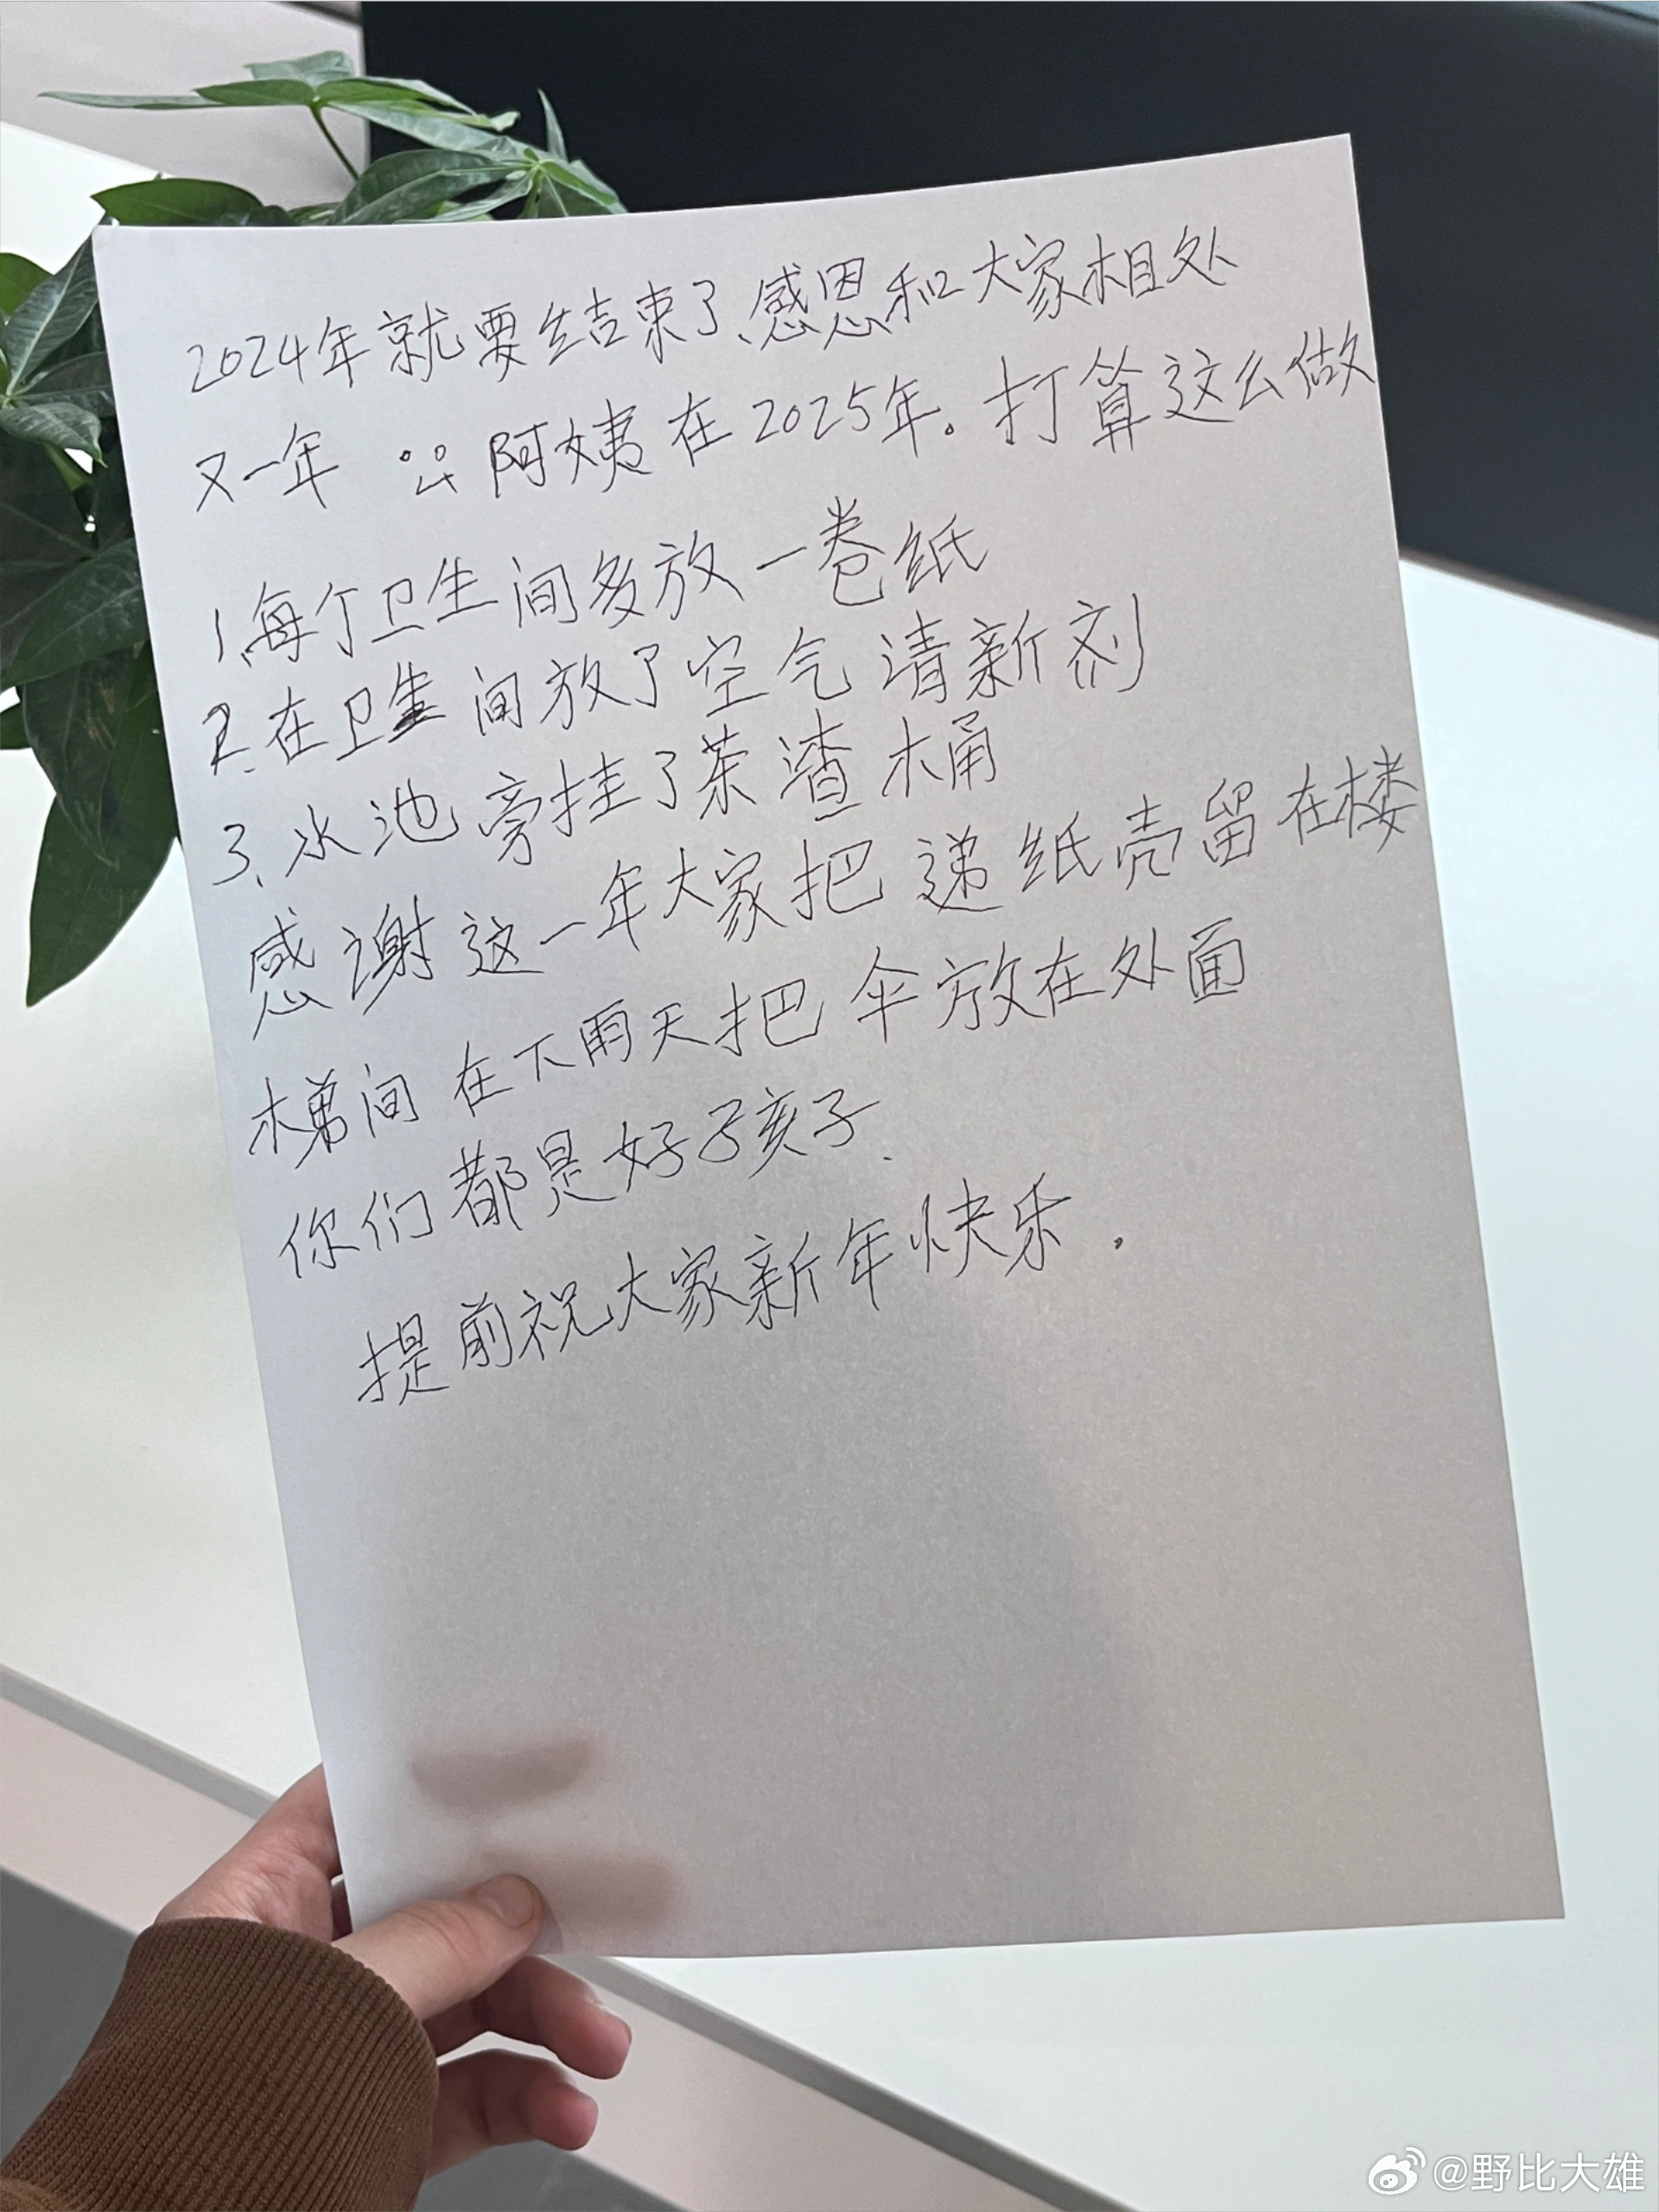 2024年就要结束了、感恩和大家相处
又一年 阿姨在2025年。打算这么做
1、每个卫生间多放一卷纸
2、在卫生间放了空气清新剂
3、水池旁挂了茶渣桶
感谢这一年大家把递纸壳留在楼
梯间在下雨天把伞放在外面
你们都是好孩子.
提前祝大家新年快乐.
@野比大雄